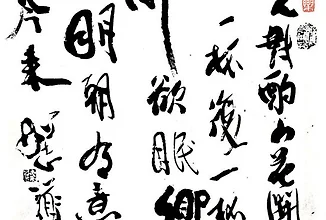 人對酌山花開
一杯復一杯
欲眠卿
明朝有意
琴来